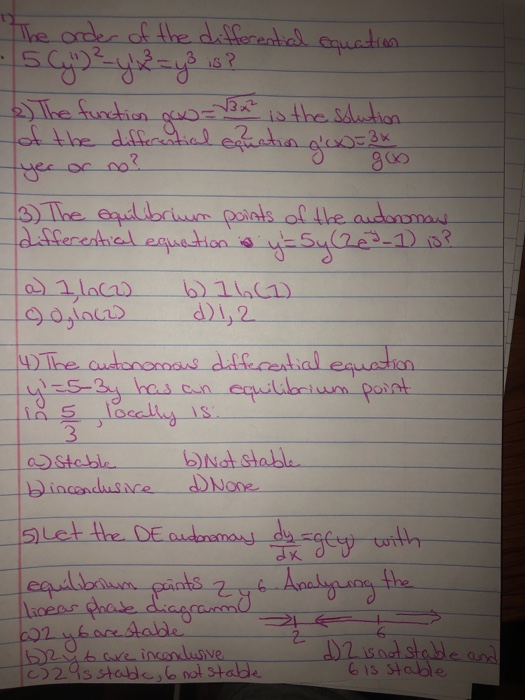 1) The order of the differential equation
5(y'')² - y'x³ = y³ is?
2) The function g(x) = √3x²/2 is the solution
of the differential equation g'(x) = 3x/g(x)
yes or no?
3) The equilibrium points of the autonomous
differential equation y' = 5y(2e⁻ʸ - 1) is?
a) 1, ln(2) b) 1 ln(1)
c) 0, ln(2) d) 1, 2
4) The autonomous differential equation
y' = 5 - 3y has an equilibrium point
in 5/3, locally is:
a) Stable b) Not stable
b) inconclusive d) None
5) Let the DE autonomous dy/dx = g(y) with
equilibrium points 2 y 6. Analyzing the
linear phase diagramm
2 6
a) 2 y 6 are stable
b) 2 y 6 are inconclusive d) 2 is not stable and
c) 2 is stable, 6 not stable 6 is stable